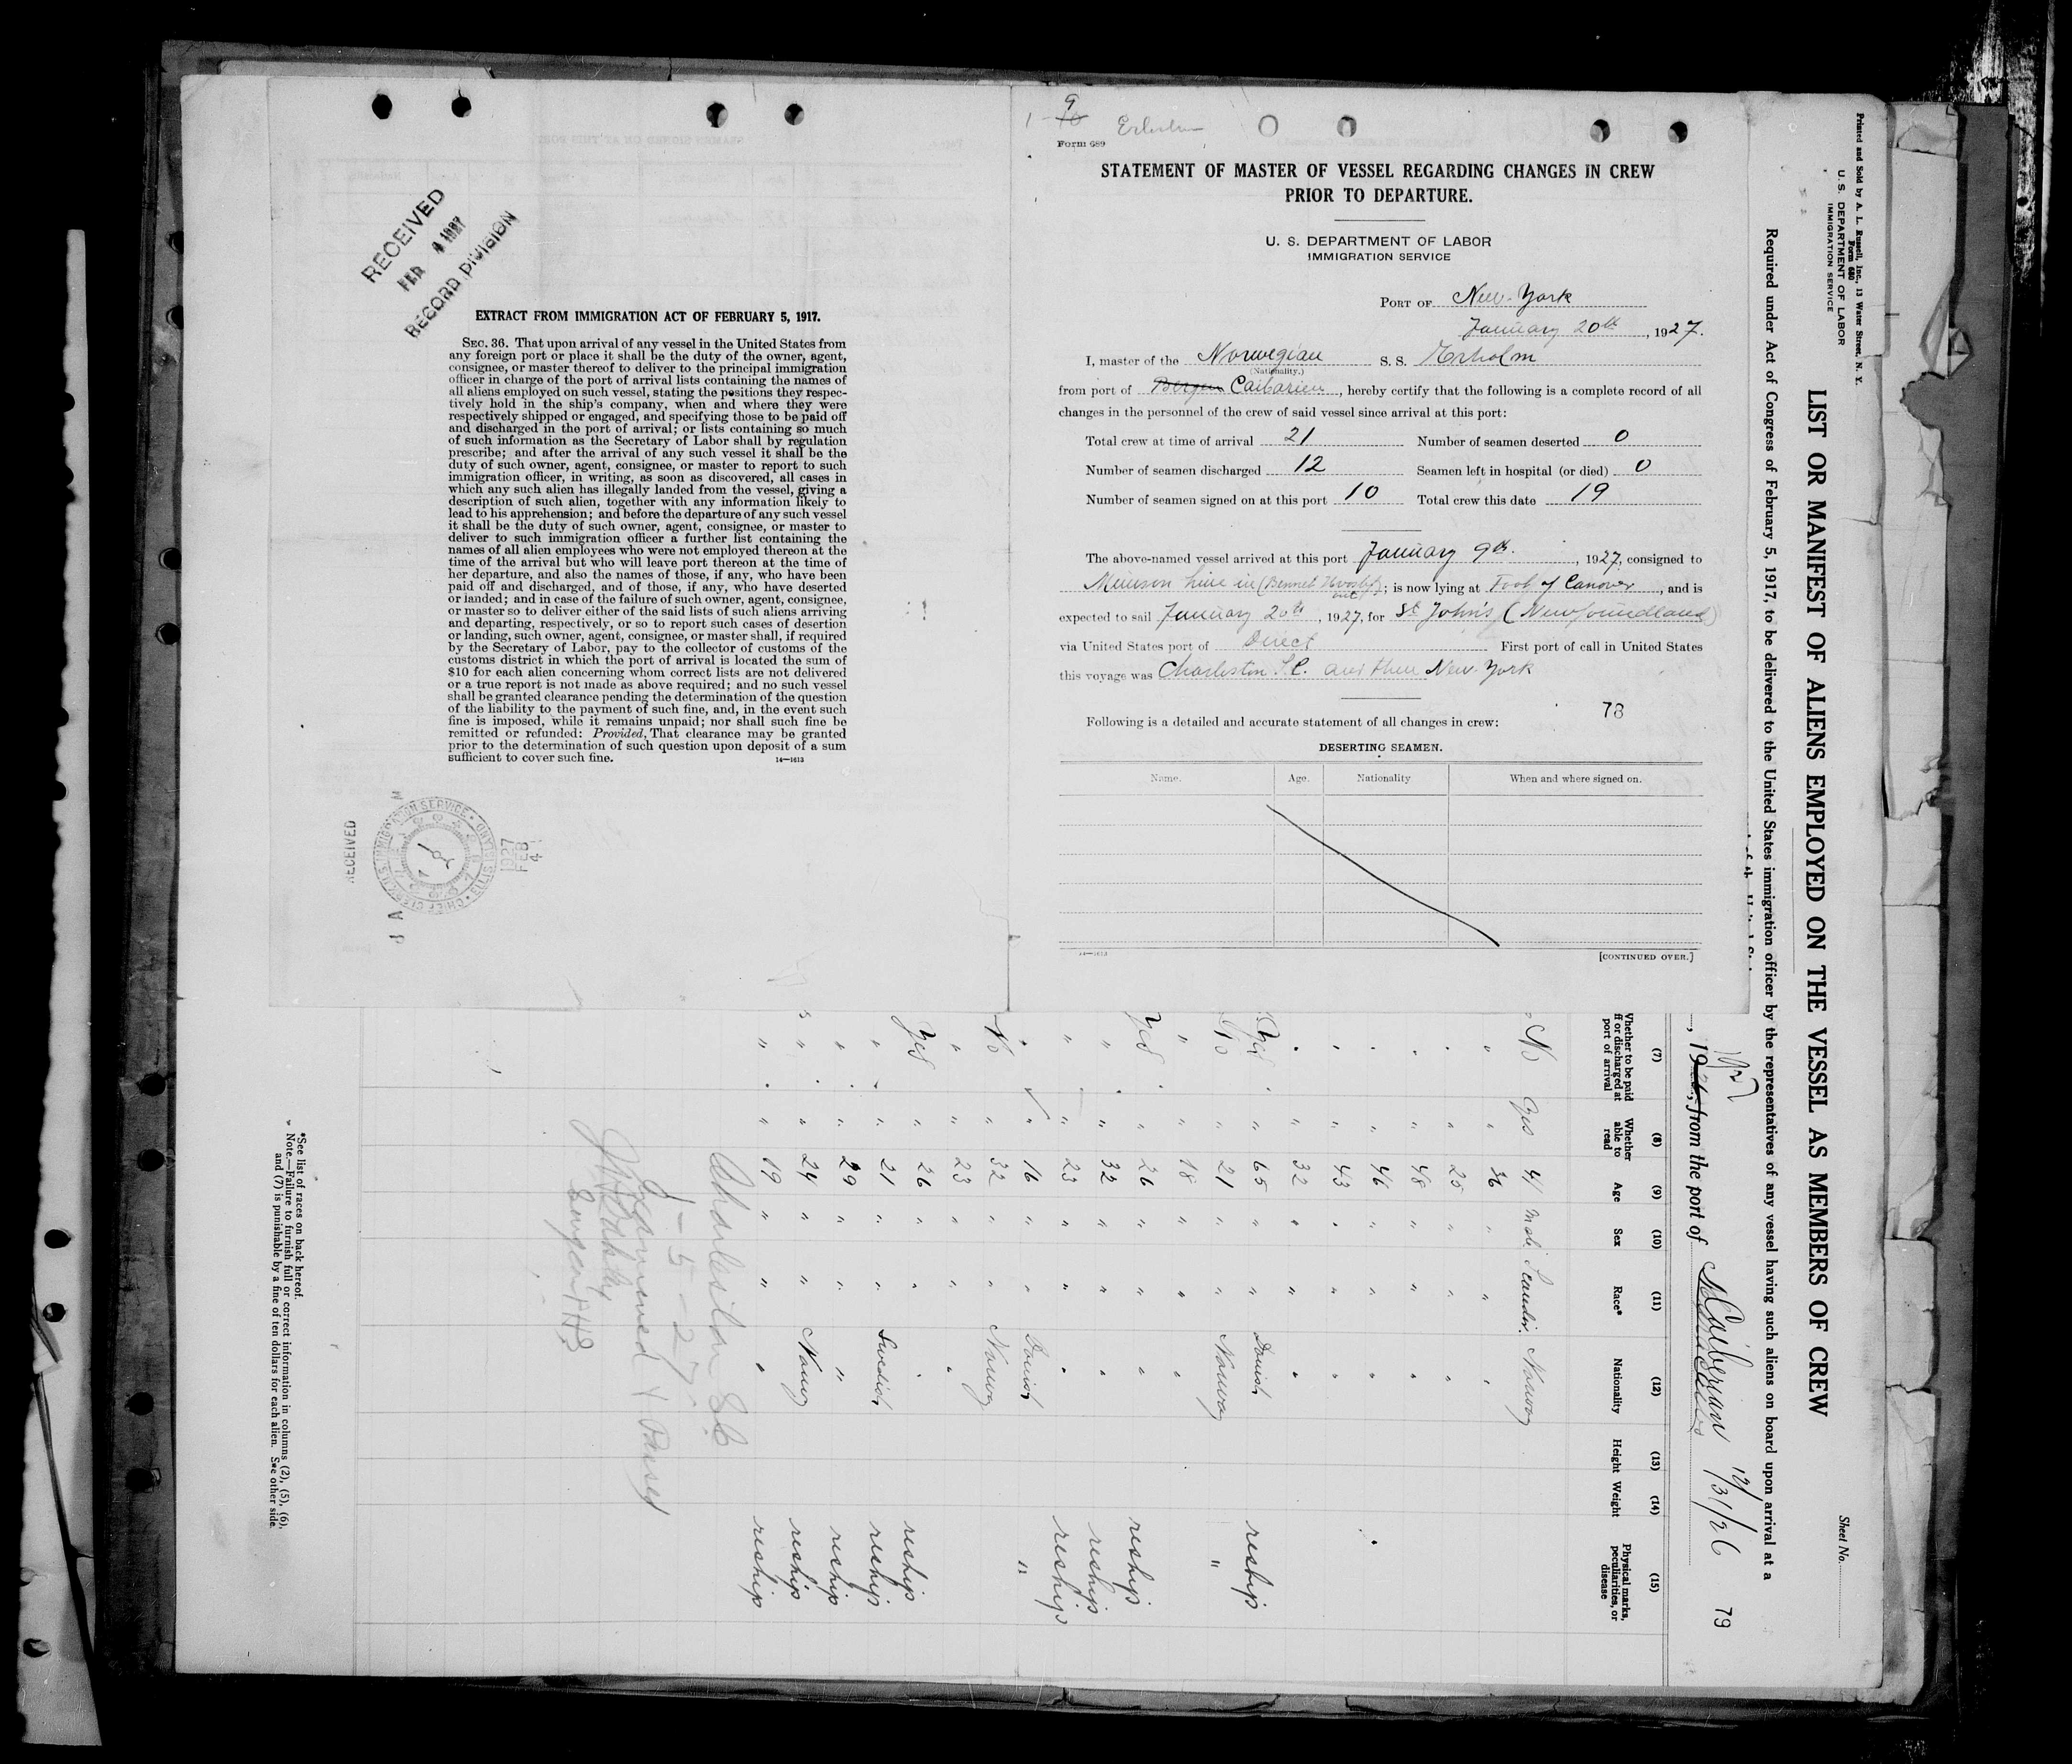 RECEIVED
FEB 4 1927
RECORD DIVISION
EXTRACT FROM IMMIGRATION ACT OF FEBRUARY 5, 1917.
SEC. 36. That upon arrival of any vessel in the United States from
any foreign port or place it shall be the duty of the owner, agent,
consignee, or master thereof to deliver to the principal immigration
officer in charge of the port of arrival lists containing the names of
all aliens employed on such vessel, stating the positions they respec-
tively hold in the ship's company, when and where they were
respectively shipped or engaged, and specifying those to be paid off
and discharged in the port of arrival; or lists containing so much
of such information as the Secretary of Labor shall by regulation
prescribe; and after the arrival of any such vessel it shall be the
duty of such owner, agent, consignee, or master to report to such
immigration officer, in writing, as soon as discovered, all cases in
which any such alien has illegally landed from the vessel, giving a
description of such alien, together with any information likely to
lead to his apprehension; and before the departure of any such vessel
it shall be the duty of such owner, agent, consignee, or master to
deliver to such immigration officer a further list containing the
names of all alien employees who were not employed thereon at the
time of the arrival but who will leave port thereon at the time of
her departure, and also the names of those, if any, who have been
paid off and discharged, and of those, if any, who have deserted
or landed; and in case of the failure of such owner, agent, consignee,
or master so to deliver either of the said lists of such aliens arriving
and departing, respectively, or so to report such cases of desertion
or landing, such owner, agent, consignee, or master shall, if required
by the Secretary of Labor, pay to the collector of customs of the
customs district in which the port of arrival is located the sum of
$10 for each alien concerning whom correct lists are not delivered
or a true report is not made as above required; and no such vessel
shall be granted clearance pending the determination of the question
of the liability to the payment of such fine, and, in the event such
fine is imposed, while it remains unpaid; nor shall such fine be
remitted or refunded: Provided, That clearance may be granted
prior to the determination of such question upon deposit of a sum
sufficient to cover such fine.
14—1613
RECEIVED
CHIEF CLERK U.S. IMMIGRATION SERVICE ELLIS ISLAND
1927 FEB 4
9
Form 689
STATEMENT OF MASTER OF VESSEL REGARDING CHANGES IN CREW
PRIOR TO DEPARTURE.
U. S. DEPARTMENT OF LABOR
IMMIGRATION SERVICE
PORT OF New-York
January 20th, 1927.
I, master of the Norwegian S. S. Erholm
(Nationality.)
from port of Bergen Caibarien, hereby certify that the following is a complete record of all
changes in the personnel of the crew of said vessel since arrival at this port:
Total crew at time of arrival 21 Number of seamen deserted 0
Number of seamen discharged 12 Seamen left in hospital (or died) 0
Number of seamen signed on at this port 10 Total crew this date 19
The above-named vessel arrived at this port January 9th., 1927, consigned to
Munson Line in (Bennet out); is now lying at Foot of Canover, and is
expected to sail January 20th, 1927, for St John's (Newfoundland)
via United States port of Direct First port of call in United States
this voyage was Charleston S.C. and then New-York
78
Following is a detailed and accurate statement of all changes in crew:
DESERTING SEAMEN.
Name. Age. Nationality When and where signed on.
14—1613
[CONTINUED OVER.]
Printed and Sold by A. L. Russell, Inc., 13 Water Street, N. Y.
Form 680
U. S. DEPARTMENT OF LABOR
IMMIGRATION SERVICE
Sheet No.
LIST OR MANIFEST OF ALIENS EMPLOYED ON THE VESSEL AS MEMBERS OF CREW
Required under Act of Congress of February 5, 1917, to be delivered to the United States immigration officer by the representatives of any vessel having such aliens on board upon arrival at a
, 1926, from the port of Caibarian 12/31/26 79
(7) (8) (9) (10) (11) (12) (13) (14) (15)
Whether to be paid off or discharged at port of arrival Whether able to read Age Sex Race* Nationality Height Weight Physical marks, peculiarities, or disease
No Yes 41 Male Scandin. Norway
" " 36 " " "
" " 25 " " "
" " 48 " " "
" " 46 " " "
" " 43 " " "
" " 32 " " "
Yes " 65 " " Danish reship
No " 21 " " Norway "
" " 18 " " "
Yes " 26 " " " reship
" " 32 " " " reship
" " 23 " " " reship
" " 16 " " Danish "
No " 32 " " Norway
" " 23 " " "
Yes " 26 " " " reship
" " 21 " " Swedish reship
" " 29 " " " reship
" " 24 " " Norway reship
" " 19 " " " reship
Charleston S.C.
1-5-27
Examined & Passed
*See list of races on back hereof.
Note.—Failure to furnish full or correct information in columns (2), (5), (6),
and (7) is punishable by a fine of ten dollars for each alien. See other side.